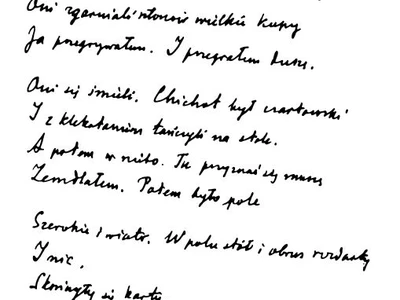 Oni zgarniali słoneis wielkie kupy
Ja przegrywałem. I przegrałem duszę.
Oni się śmieli. Chichot był czartowski
I z klekotaniem tańczyli na stole.
A potem w niebo. Tu przyznać się muszę
Zemdlałem. Potem było pole
Szerokie i wiatr. W polu stół i obrus rozdarty
I nic.
się karty